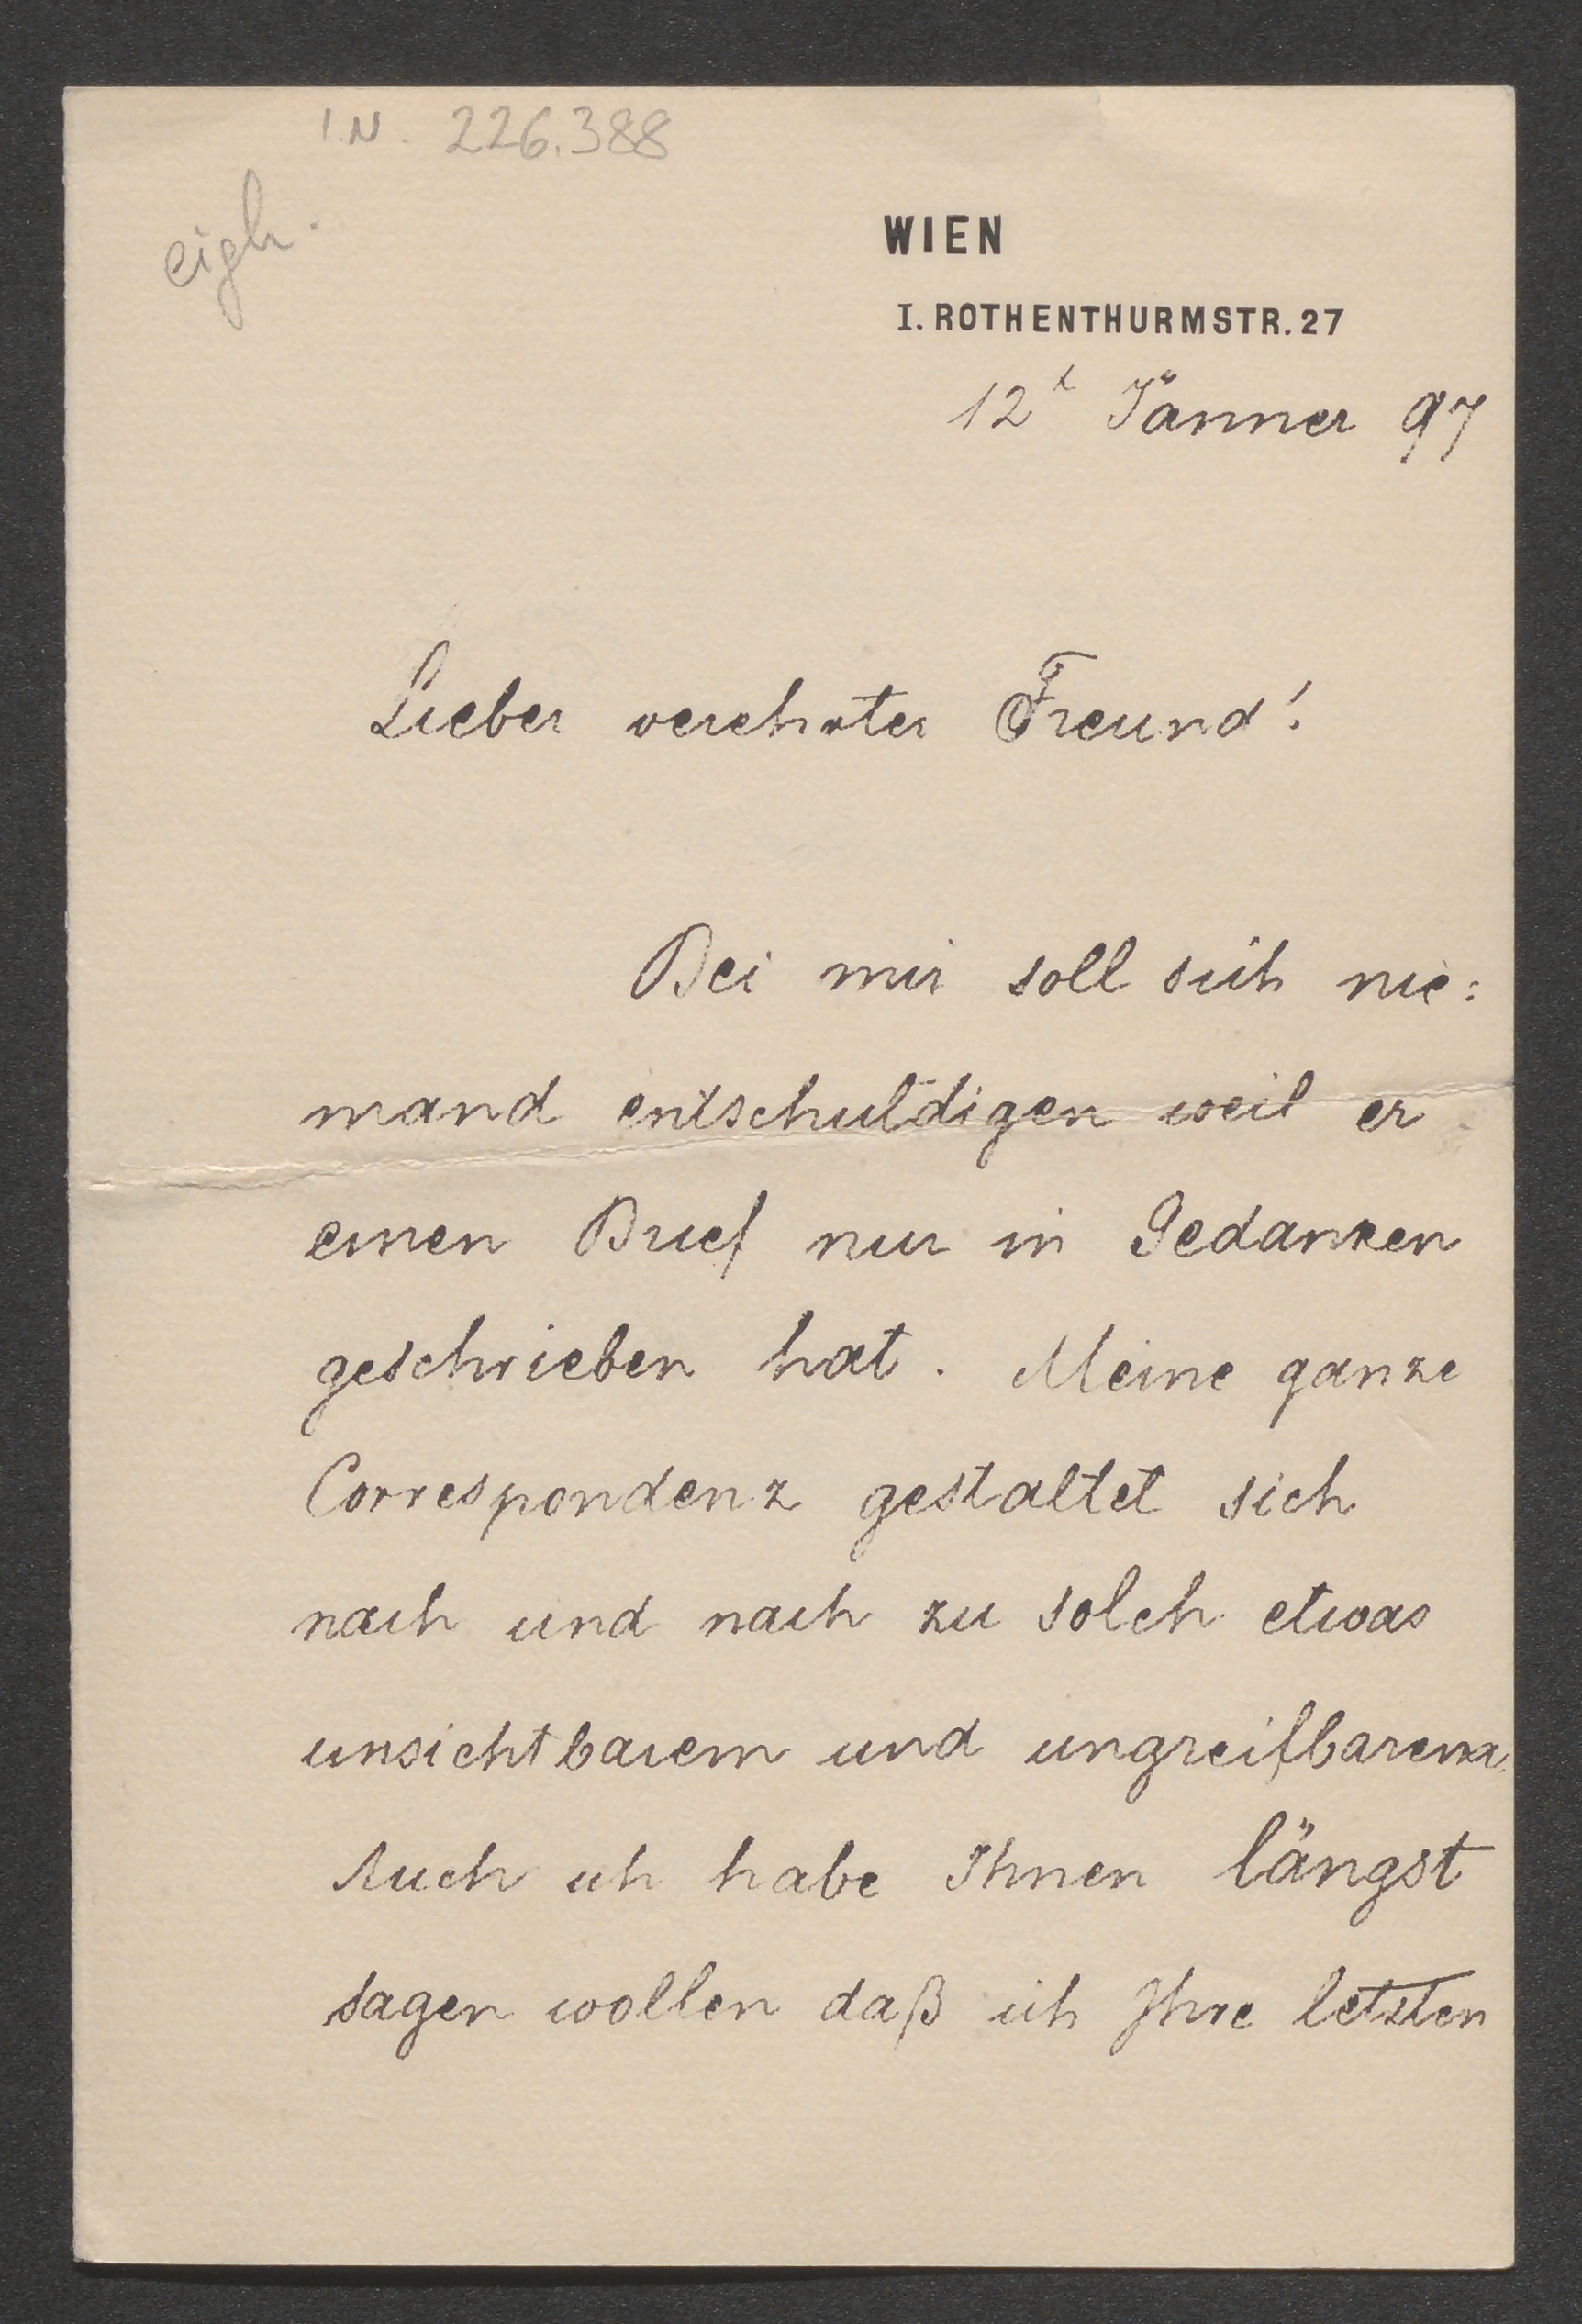 I.N. 226.388
eigh.
WIEN
I. ROTHENTHURMSTR. 27
12t Jänner 97
Lieber verehrter Freund!
Bei mir soll sich nie:
mand entschuldigen weil er
einen Brief nur in Gedanken
geschrieben hat. Meine ganze
Correspondenz gestaltet sich
nach und nach zu solch etwas
unsichtbarem und ungreifbarem.
Auch ich habe Ihnen längst
sagen wollen daß ich Ihre letzten